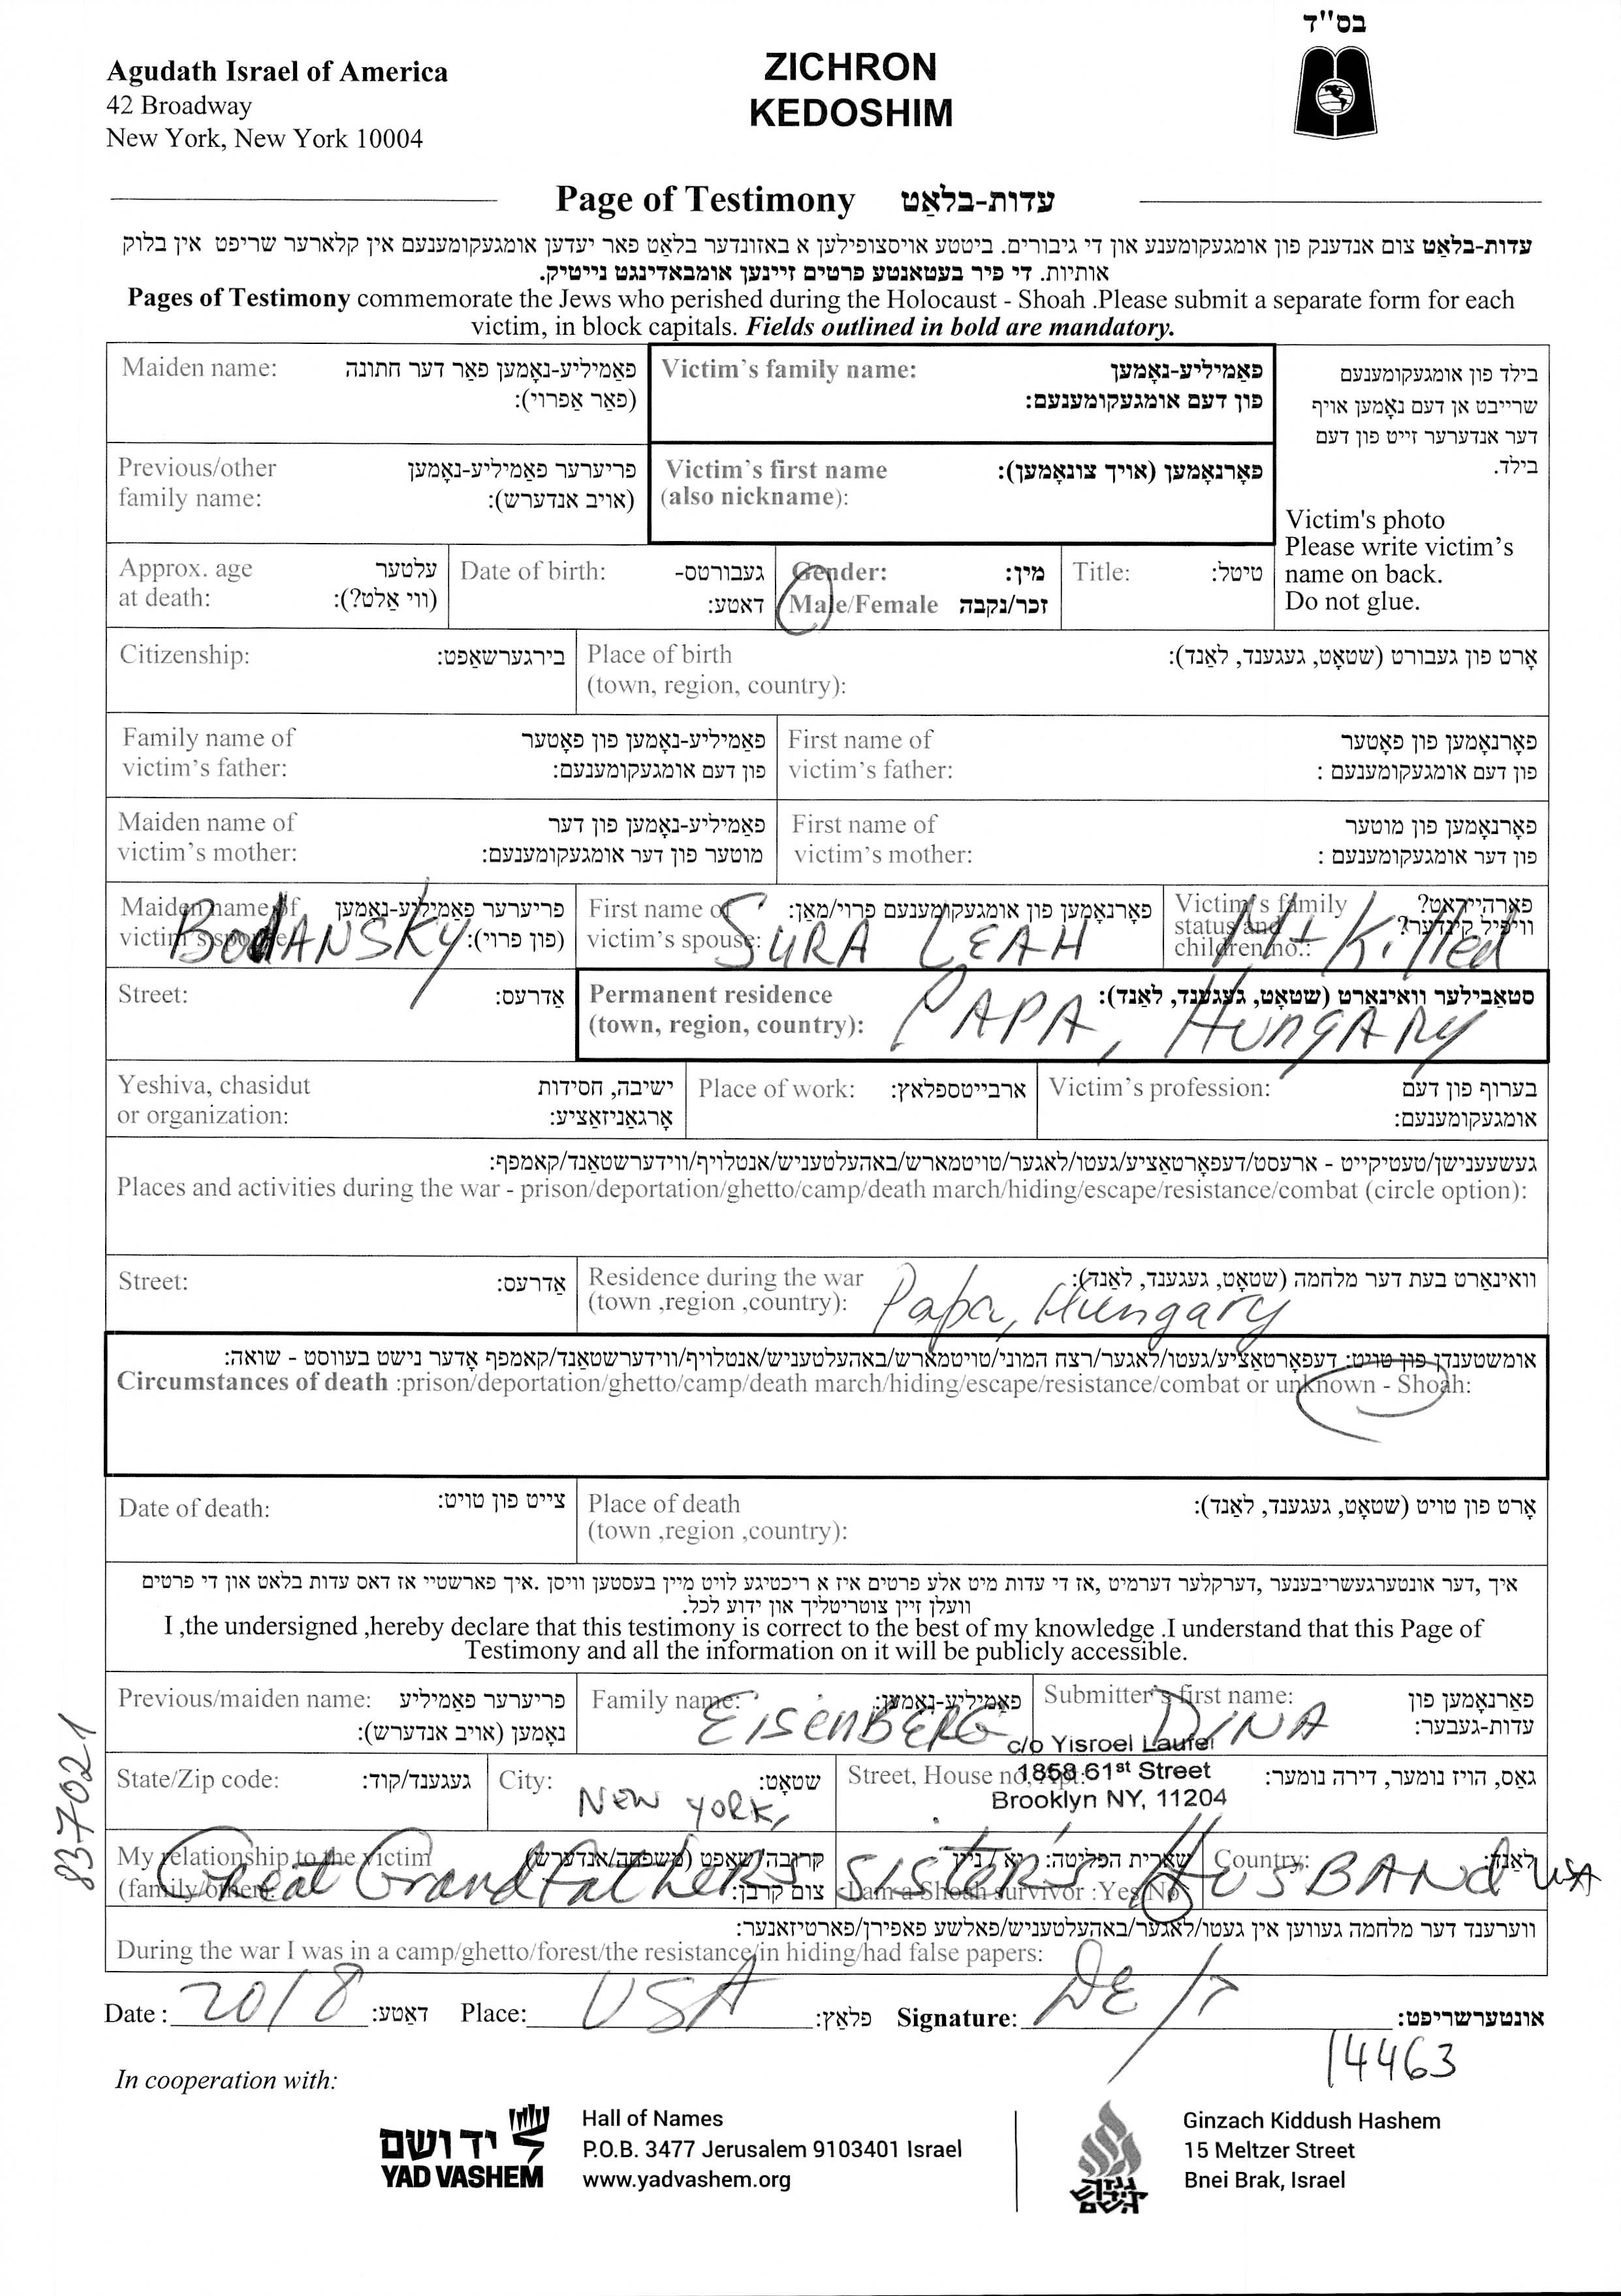 בס"ד
Agudath Israel of America
42 Broadway
New York, New York 10004
ZICHRON
KEDOSHIM
Page of Testimony עדות-בלאַט
עדות-בלאַט צום אנדענק פון אומגעקומענע און די גיבורים. ביטטע אויסצופילען א באזונדער בלאַט פאר יעדען אומגעקומענעם אין קלארער שריפט אין בלוק
אותיות. די פיר בעטאנטע פרטים זיינען אומבאדינגט נייטיק.
Pages of Testimony commemorate the Jews who perished during the Holocaust - Shoah .Please submit a separate form for each
victim, in block capitals. Fields outlined in bold are mandatory.
Maiden name: פאַמיליע-נאָמען פאַר דער חתונה
(פאַר אַפרוי):
Victim's family name: פאַמיליע-נאָמען
פון דעם אומגעקומענעם:
בילד פון אומגעקומענעם
שרייבט אן דעם נאָמען אויף
דער אנדערער זייט פון דעם
בילד.
Previous/other פריערער פאַמיליע-נאָמען
family name: (אויב אנדערש):
Victim's first name פאָרנאָמען (אויך צונאָמען):
(also nickname):
Victim's photo
Please write victim's
name on back.
Do not glue.
Approx. age עלטער
at death: (ווי אַלט?):
Date of birth: געבורטס-
דאטע:
Gender: מין:
Male/Female זכר/נקבה
Title: טיטל:
Citizenship: בירגערשאַפט:
Place of birth אָרט פון געבורט (שטאָט, געגענד, לאַנד):
(town, region, country):
Family name of פאַמיליע-נאָמען פון פאָטער
victim's father: פון דעם אומגעקומענעם:
First name of פאָרנאָמען פון פאָטער
victim's father: פון דעם אומגעקומענעם :
Maiden name of פאַמיליע-נאָמען פון דער
victim's mother: מוטער פון דער אומגעקומענעם:
First name of פאָרנאָמען פון מוטער
victim's mother: פון דער אומגעקומענעם :
Maiden name of פריערער פאַמיליע-נאָמען
victim's spouse: (פון פרוי):
BodANSKY
First name of פאָרנאָמען פון אומגעקומענעם פרוי/מאַן:
victim's spouse:
SURA LEAH
Victim's family פארהייראט?
status and וויפיל קינדער?
children no.:
M+ Killed
Street: אַדרעס:
Permanent residence סטאַבילער וואינארט (שטאָט, געגענד, לאַנד):
(town, region, country):
PAPA, HUNGARY
Yeshiva, chasidut ישיבה, חסידות
or organization: אָרגאַניזאַציע:
Place of work: ארבייטספלאץ:
Victim's profession: בערוף פון דעם
אומגעקומענעם:
געשעענישן/טעטיקייט - ארעסט/דעפאָרטאַציע/געטו/לאגער/טויטמארש/באהעלטעניש/אנטלויף/ווידערשטאַנד/קאמפף:
Places and activities during the war - prison/deportation/ghetto/camp/death march/hiding/escape/resistance/combat (circle option):
Street: אַדרעס:
Residence during the war וואינארט בעת דער מלחמה (שטאָט, געגענד, לאַנד):
(town ,region ,country):
Papa, Hungary
אומשטענדן פון טויט: דעפאָרטאַציע/געטו/לאגער/רצח המוני/טויטמארש/באהעלטעניש/אנטלויף/ווידערשטאַנד/קאמפף אָדער נישט בעוווסט - שואה:
Circumstances of death :prison/deportation/ghetto/camp/death march/hiding/escape/resistance/combat or unknown - Shoah:
Date of death: צייט פון טויט:
Place of death אָרט פון טויט (שטאָט, געגענד, לאַנד):
(town ,region ,country):
איך ,דער אונטערגעשריבענער ,דערקלער דערמיט ,אז די עדות מיט אלע פרטים איז א ריכטיגע לויט מיין בעסטען וויסן .איך פארשטיי אז דאס עדות בלאט און די פרטים
וועלן זיין צוטריטליך און ידוע לכל.
I ,the undersigned ,hereby declare that this testimony is correct to the best of my knowledge .I understand that this Page of
Testimony and all the information on it will be publicly accessible.
Previous/maiden name: פריערער פאַמיליע
נאָמען (אויב אנדערש):
Family name: פאַמיליע-נאָמען:
EISENBERG
Submitter's first name: פאַרנאָמען פון
עדות-געבער:
DINA
State/Zip code: געגענד/קוד:
City: שטאָט:
NEW YORK,
Street, House no, Apt: גאַס, הויז נומער, דירה נומער:
c/o Yisroel Laufer
1858 61st Street
Brooklyn NY, 11204
My relationship to the victim קרובה'שאפט (משפחה/אנדערש)
(family/other): צום קרבן:
I am a Shoah survivor :Yes/No
Country: לאַנד:
Great Grandfather's SISTER'S HUSBANd USA
ווערענד דער מלחמה געווען אין געטו/לאַגער/באהעלטעניש/פאלשע פאפירן/פארטיזאנער:
During the war I was in a camp/ghetto/forest/the resistance/in hiding/had false papers:
Date : 2018 דאַטע: Place: USA פלאַץ: Signature: DE אונטערשריפט:
14463
837021
In cooperation with:
יד ושם
YAD VASHEM
Hall of Names
P.O.B. 3477 Jerusalem 9103401 Israel
www.yadvashem.org
Ginzach Kiddush Hashem
15 Meltzer Street
Bnei Brak, Israel